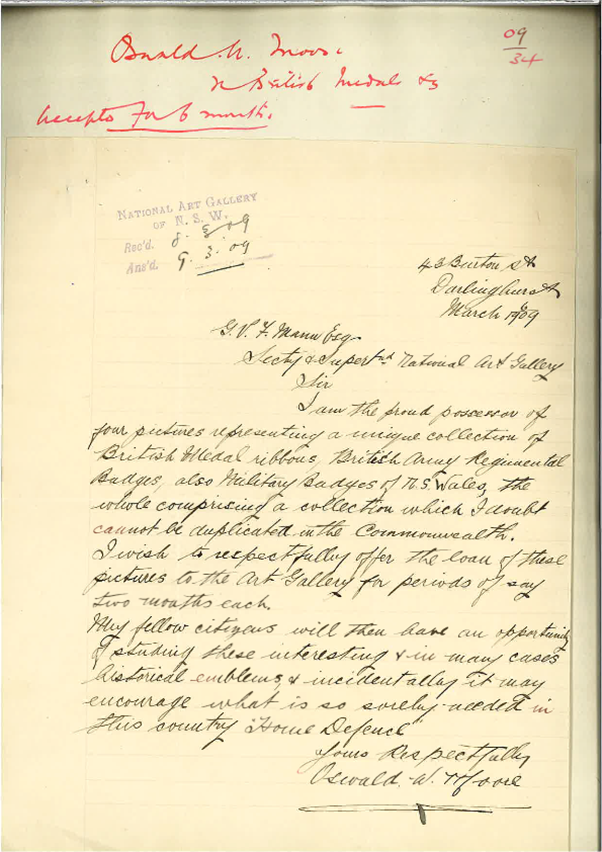 Oswald. W. Moore
re British Medals &s
Accepts for 6 months.
09
34
NATIONAL ART GALLERY
OF N. S. W.
Rec'd. 8. 3. 09
Ans'd. 9. 3. 09
43 Burton St
Darlinghurst
March 1909
G. V. F. Mann Esq
Secty & Supertnd National Art Gallery
Sir
I am the proud possessor of
four pictures representing a unique collection of
British Medal ribbons, British Army Regimental
Badges, also Military Badges of N.S. Wales, the
whole comprising a collection which I doubt
cannot be duplicated in the Commonwealth.
I wish to respectfully offer the loan of these
pictures to the Art Gallery for periods of say
two months each.
My fellow citizens will then have an opportunity
of studing these interesting & in many cases
historical emblems, & incidentally it may
encourage what is so sorely needed in
this country "Home Defence"
Yours Respectfully
Oswald. W. Moore